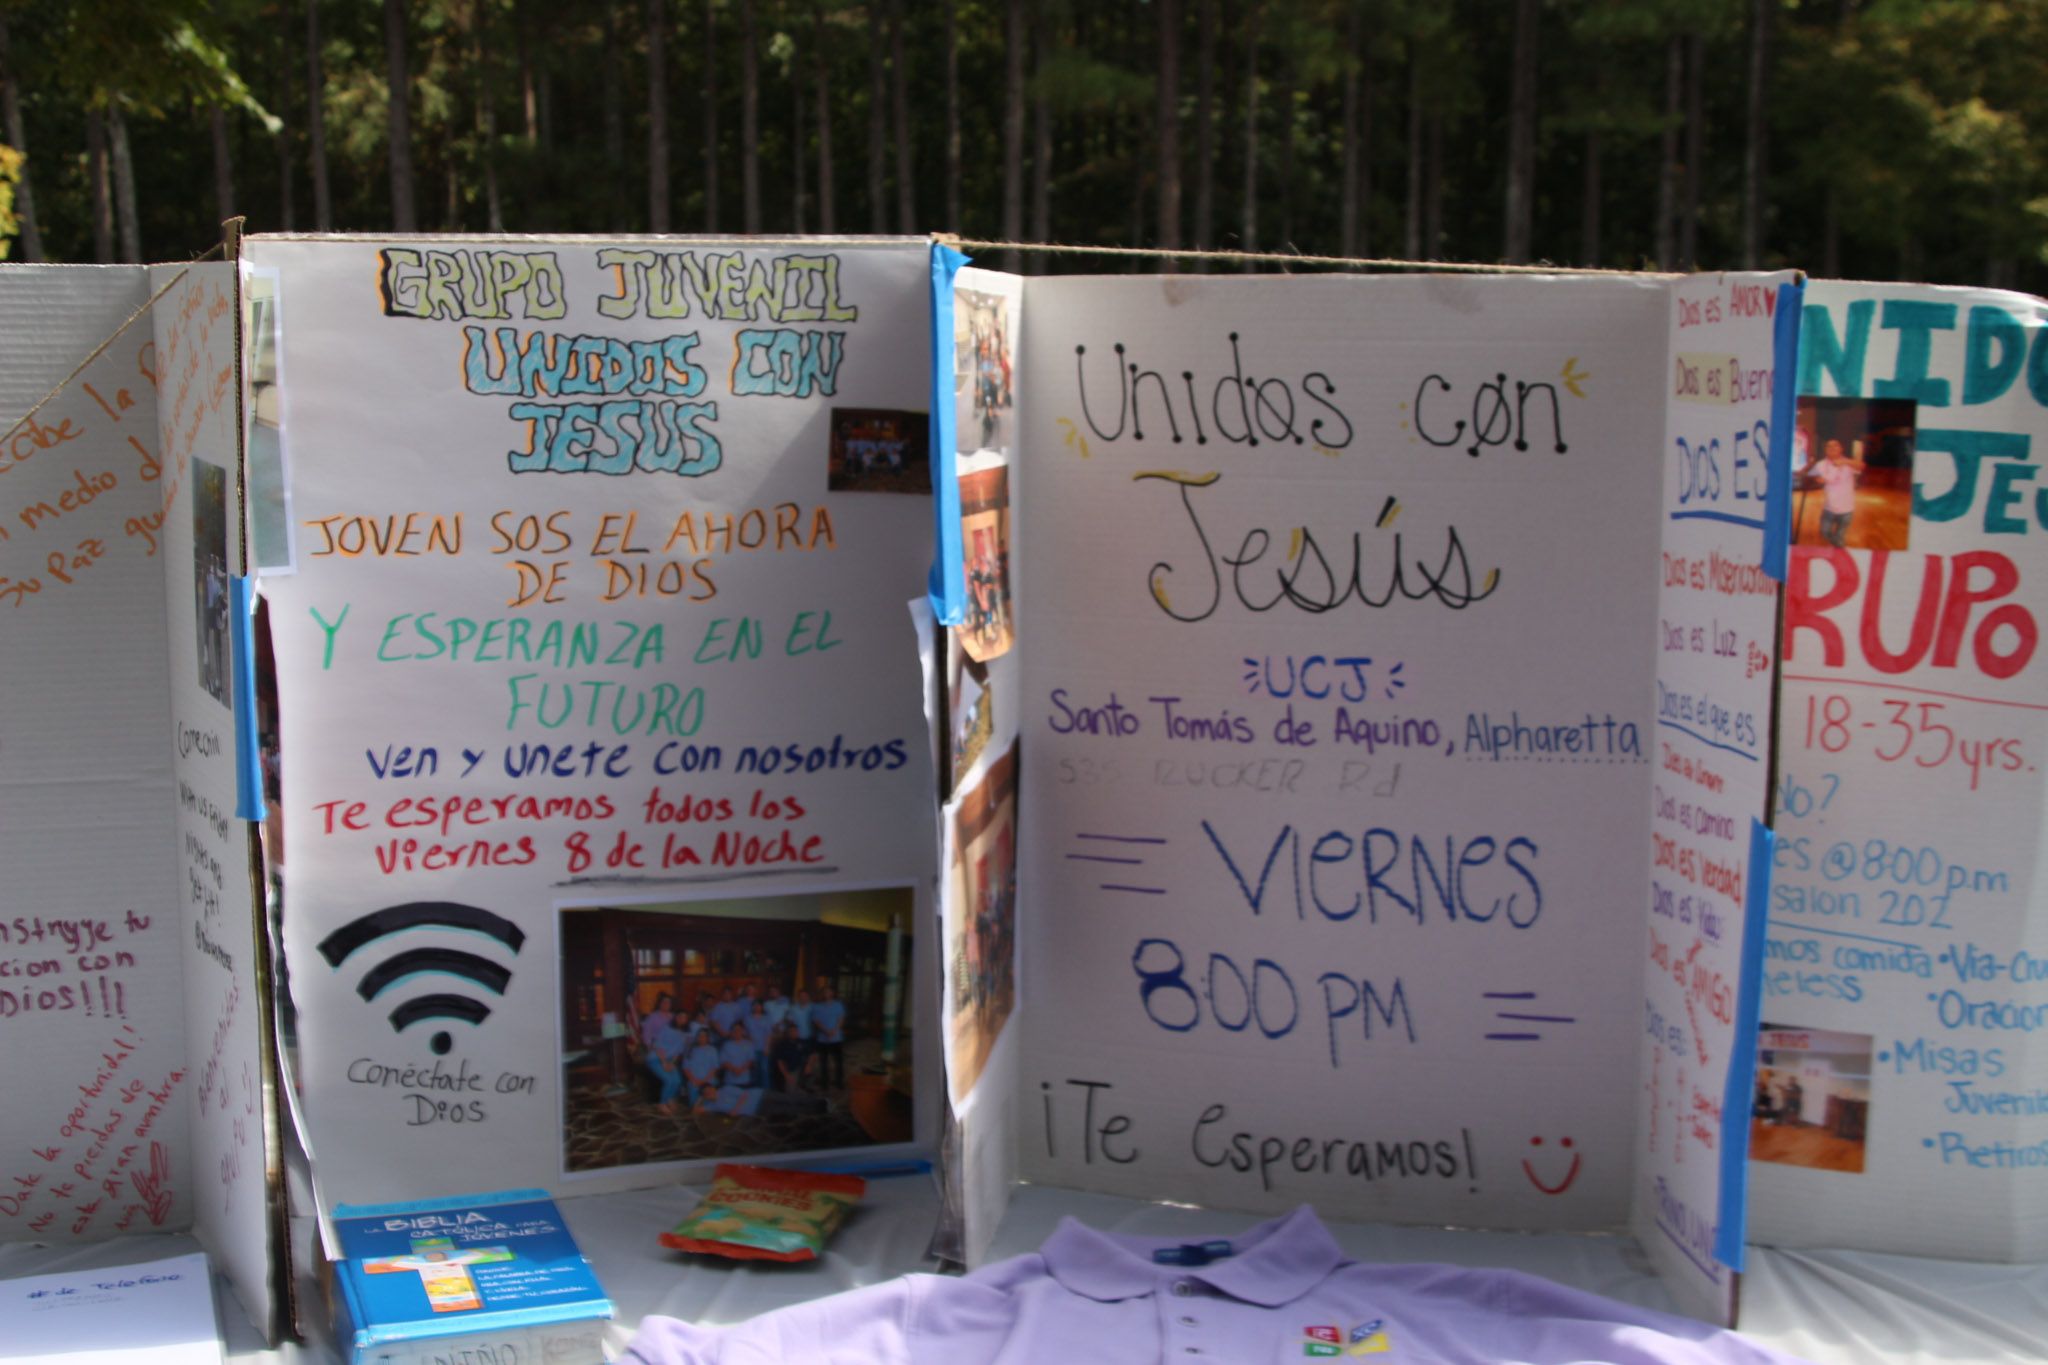 medio d
su Paz
nstruye tu
cion con
Dios!!!
Date la oportunidad!
No te pierdas de
esta gran aventura.
# de Telefono
With us Friday
GRUPO JUVENIL
UNIDOS CON
JESUS
JOVEN SOS EL AHORA
DE DIOS
Y ESPERANZA EN EL
FUTURO
Ven y unete con nosotros
Te esperamos todos los
viernes 8 de la Noche
Conéctate con
Dios
LA BIBLIA
CATÓLICA PARA
JÓVENES
COOKIES
Unidos con
Jesús
UCJ
Santo Tomás de Aquino, Alpharetta
535 RUCKER Rd
VIERNES
8:00 PM
¡Te Esperamos!
Dios es AMOR
Dios es Buen
DIOS ES
Dios es Misericordi
Dios es Luz
Dios es el que es
Dios es Camino
Dios es Verdad
Dios es Vida
Dios es AMIGO
Dios es:
NIDO
JES
RUPO
18-35 yrs.
No?
es @ 8:00 p.m
salon 202
mos comida
meless
• Via-Cru
• Oracion
• Misas
Juvenil
• Retiros
JESUS